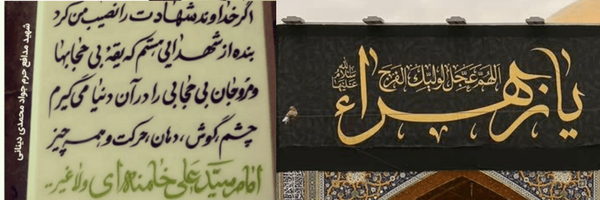 اگر خداوند شهادت را نصیب من کرد
بنده از شهدایی هستم که یقه بی حجابها
و مروجان بی حجابی را در آن دنیا می گیرم
چشم، گوش، دهان، حرکت و همه چیز
امام سید علی خامنه ای ولاغیر..
شهید مدافع حرم جواد محمدی دینانی
اللهم عجل لولیک الفرج
یا زهراء
سلام الله علیها